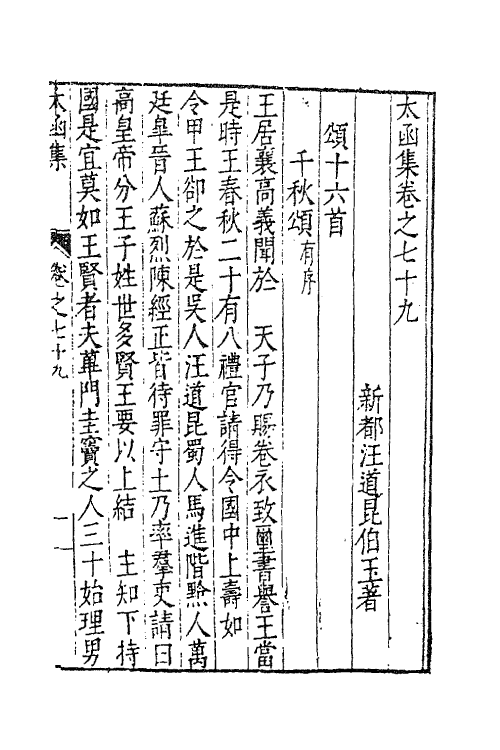 太函集卷之七十九
新都汪道昆伯玉著
頌十六首
千秋頌有序
王居襄高義聞於　天子乃賜卷衣致璽書譽王當
是時王春秋二十有八禮官請得令國中上壽如
令甲王卻之於是吳人汪道昆蜀人馬進階黔人萬
廷皐晉人蘇烈陳經正皆待罪守土乃率羣吏請曰
高皇帝分王子姓世多賢王要以上結　主知下持
國是宜莫如王賢者夫蓽門圭竇之人三十始理男
太函集　卷之七十九　一